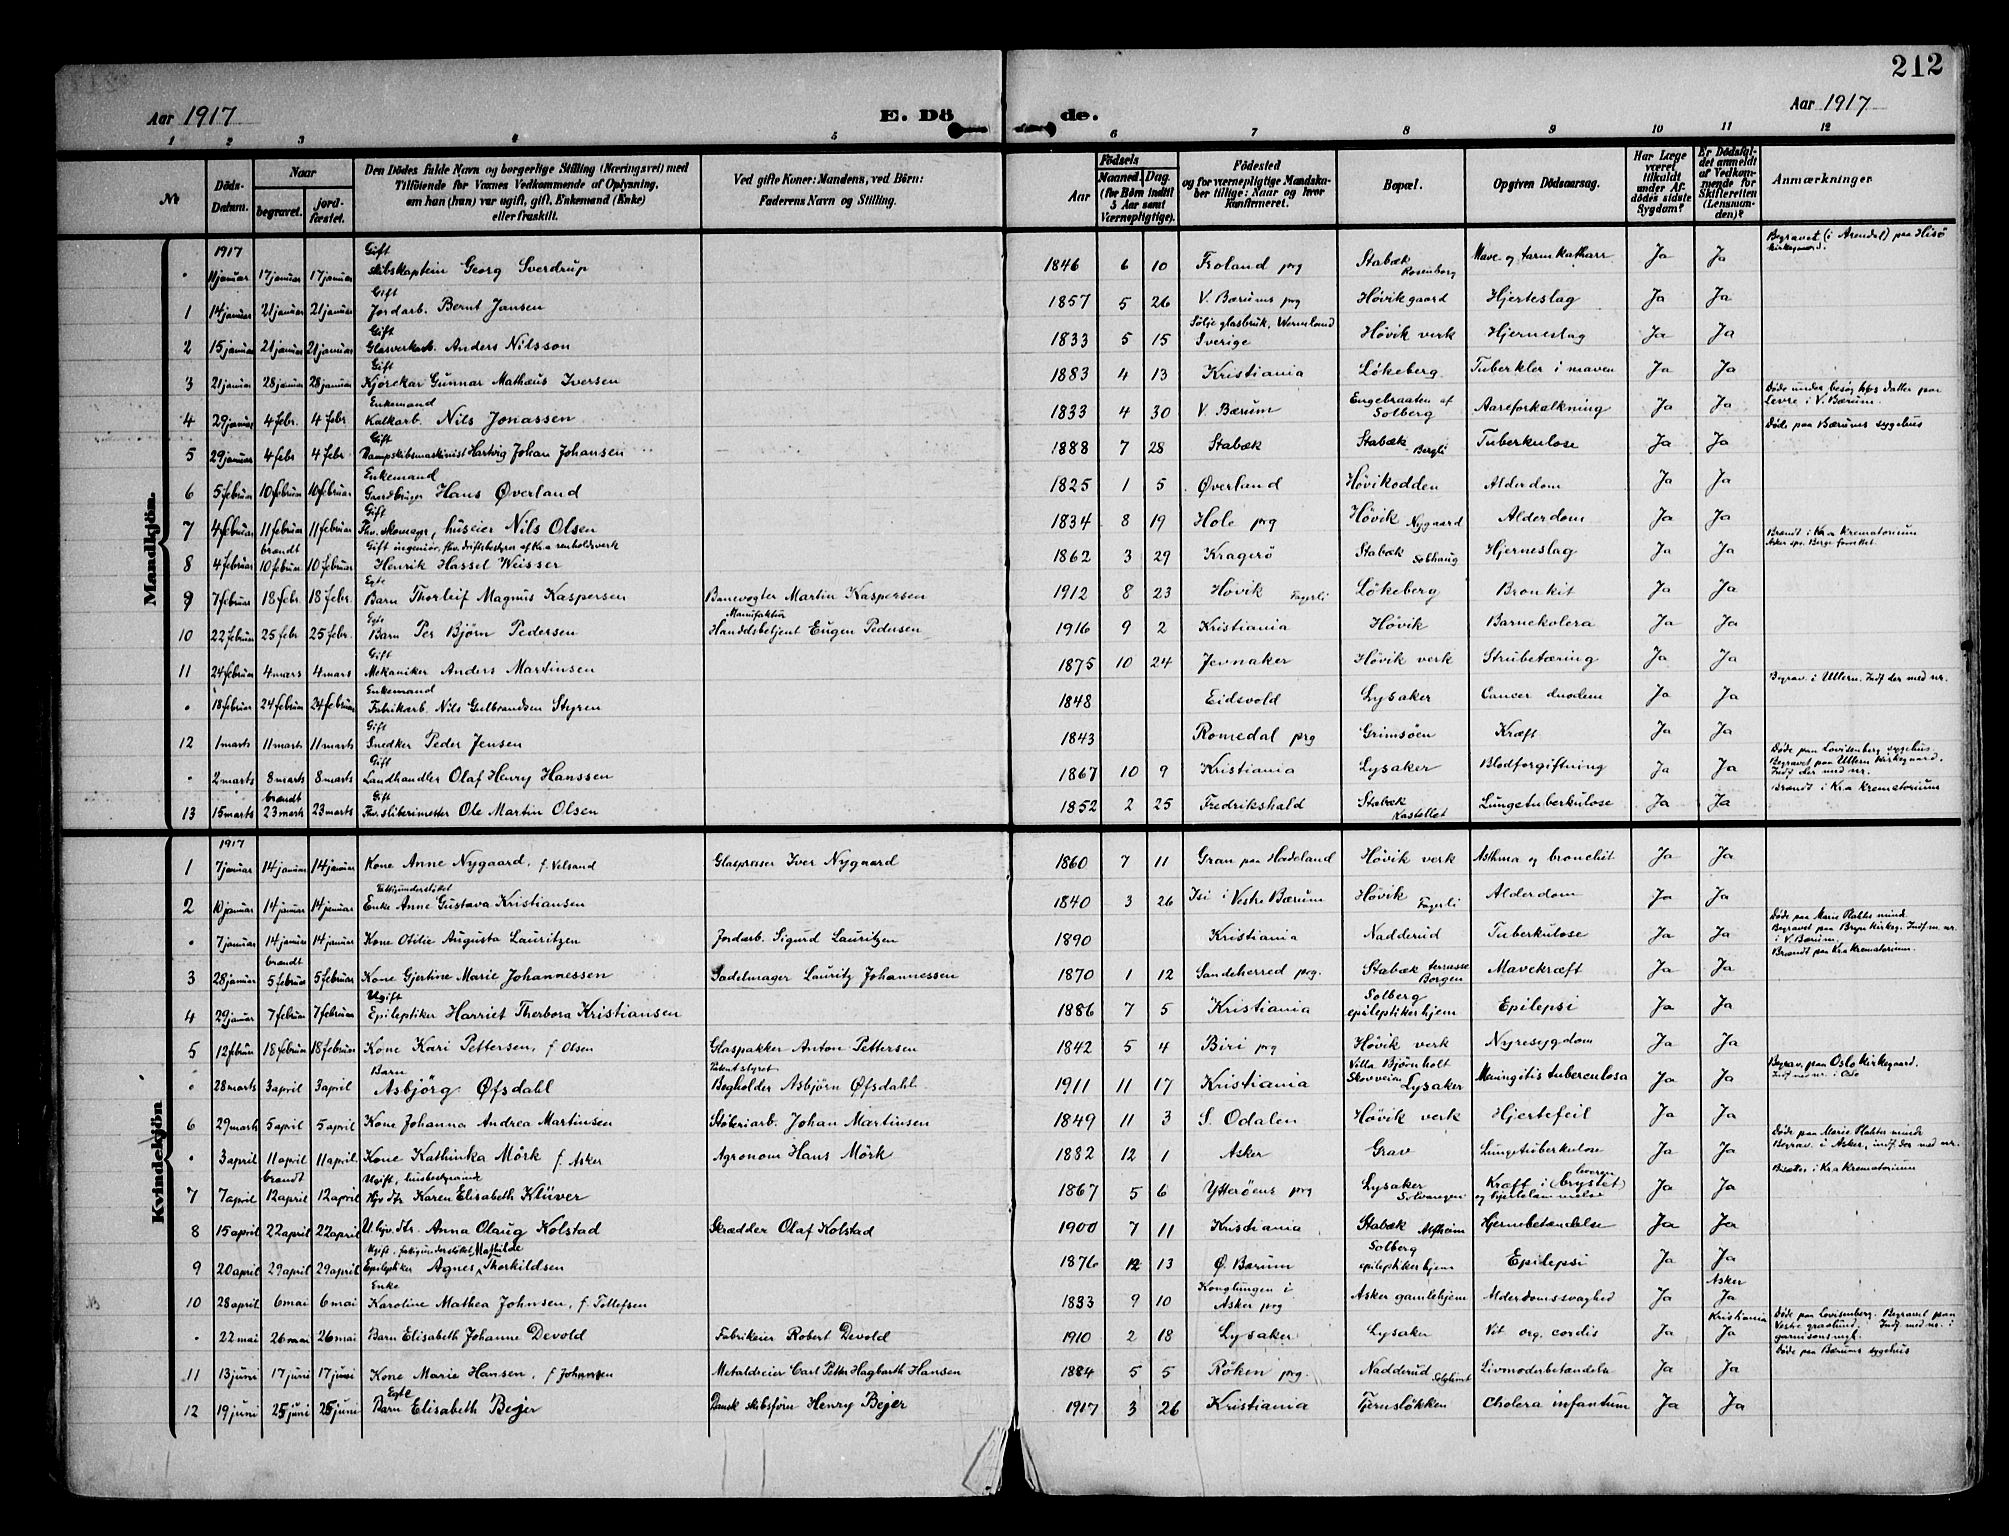 212
Aar 1917 E. Döde. Aar 1917
1 2 3 4 5 6 7 8 9 10 11 12
No
Döds-Datum.
Naar
begravet.
jord-fæstet.
Den Dödes fulde Navn og borgerlige Stilling (Næringsvei) med
Tilföiende for Voxnes Vedkommende af Oplysning,
om han (hun) var ugift, gift, Enkemand (Enke)
eller fraskilt.
Ved gifte Koner: Mandens, ved Börn:
Faderens Navn og Stilling.
Födsels
Aar
Maaned. Dag.
(for Börn indtil
5 Aar samt
Værnepligtige).
Födested
og for værnepligtige Mandska-
ber tillige: Naar og hvor
konfirmeret.
Bopæl.
Opgiven Dödsaarsag.
Har Læge
været
tilkaldt
under Af-
dödes sidste
Sygdom?
Er Dödsfal-
det anmeldt
af Vedkom-
mende for
Skifteretten
(Lensman-
den)?
Anmærkninger
Mandkjön.
1917
" 11 januar 17 januar 17 januar Gift Skibskaptein Georg Sverdrup 1846 6 10 Froland prg Stabæk Rosenborg Mave og tarmkatharr Ja Ja Begravet (i Arendal) paa Hisö kirkegaard.
1 14 januar 21 januar 21 januar Gift Jordarb. Bernt Jansen 1857 5 26 V. Bærums prg Høvik gaard Hjerteslag Ja Ja
2 15 januar 21 januar 21 januar Gift Glasverkarb. Anders Nilsson 1833 5 15 Sölje glasbruk, Wermland Sverige Høvik verk Hjerneslag Ja Ja
3 21 januar 28 januar 28 januar Gift Kjørekar Gunnar Mathæus Iversen 1883 4 13 Kristiania Løkeberg Tuberkler i maven Ja Ja
4 29 januar 4 febr. 4 febr. Enkemand Kalkarb. Nils Jonassen 1833 4 30 V. Bærum Engebraaten af Solberg Aareforkalkning Ja Ja Døde under besøg hos datter paa Levre i V. Bærum.
5 29 januar 4 febr 4 febr Gift Dampskibsmaskinist Hartvig Johan Johansen 1888 7 28 Stabæk Stabæk Bergli Tuberkulose Ja Ja Døde paa Bærums sygehus
6 5 februar 10 februar 10 februar Enkemand Gaardbruger Hans Øverland 1825 1 5 Øverland Høvikodden Alderdom Ja Ja
7 4 februar 11 februar 11 februar Gift Fhv. skomagr, huseier Nils Olsen 1834 8 19 Hole prg Høvik Nygaard Alderdom Ja Ja
8 4 februar brændt 10 februar 10 februar Gift ingeniør, fhv. driftsbestyrer af Kra renholdsverk Henrik Hassel Weisser 1862 3 29 Kragerö Stabæk Solhaug Hjerneslag Ja Ja Brændt i Kra Krematorium
9 7 februar 18 febr. 18 febr. Egte Barn Thorleif Magnus Kaspersen Banevogter Martin Kaspersen 1912 8 23 Høvik Fagerli Løkeberg Bronkit Ja Ja
10 22 februar 25 febr 25 febr. Egte Barn Per Björn Pedersen Manufaktur Handelsbetjent Eugen Pedersen 1916 9 2 Kristiania Høvik Barnekolera Ja Ja
11 24 februar 4 mars 4 mars Gift Mekaniker Anders Martinsen 1875 10 24 Jevnaker Høvik verk Strubetæring Ja Ja
" 18 februar 24 februar 24 februar Enkemand Fabrikarb. Nils Gulbrandsen Styren 1848 Eidsvold Lysaker Cancer duodem Ja Ja Begrav. i Ullern. Indf. der med nr.
12 1 marts 11 marts 11 marts Gift Snedker Peder Jensen 1843 Romedal prg Grimsøen Kræft Ja Ja
" 2 marts 8 marts 8 marts Gift Landhandler Olaf Henry Hanssen 1867 10 9 Kristiania Lysaker Blodforgiftning Ja Ja Døde paa Lovisenberg sygehus. Begravet paa Ullern Kirkegaard. Indf. der med nr.
13 15 marts brændt 23 marts 23 marts Gift Fhv. sliberimester Ole Martin Olsen 1852 2 25 Fredrikshald Stabæk Kastellet Lungetuberkulose Ja Ja Brændt i Kra Krematorium
Kvindekjön
1917
1 7 januar 14 januar 14 januar Kone Anne Nygaard, f. Velsand Glaspresser Iver Nygaard 1860 7 11 Gran paa Hadeland Høvik verk Asthma og bronchit Ja Ja
2 10 januar 14 januar 14 januar Fattigunderstøttet Enke Anne Gustava Kristiansen 1840 3 26 Isi i Vestre Bærum Høvik Fagerli Alderdom Ja Ja
" 7 januar 14 januar 14 januar Kone Otilie Augusta Lauritzen Jordarb. Sigurd Lauritzen 1890 Kristiania Nadderud Tuberkulose Ja Ja Døde paa Marie Plahtes minde Begravet paa Bryn Kirkeg. Indf. m. nr. i V. Bærum.
3 28 januar brændt 5 februar 5 februar Kone Gjertine Marie Johannessen Sadelmager Lauritz Johannessen 1870 1 12 Sandeherred prg. Stabæk terrasse Borgen Mavekræft Ja Ja Brændt paa Kra Krematorium.
4 29 januar 7 februar 7 februar Ugift Epileptiker Harriet Therbora Kristiansen 1886 7 5 Kristiania Solberg epileptikerhjem Epilepsi Ja Ja
5 12 februar 18 februar 18 februar Kone Kari Pettersen, f. Olsen Glaspakker Anton Pettersen 1842 5 4 Biri prg Høvik verk Nyresygdom Ja Ja
" 28 marts 3 april 3 april Barn Asbjörg Øfsdahl Patentstyret Bogholder Asbjörn Øfsdahl 1911 11 17 Kristiania Villa Bjørnholt Skovveien Lysaker Meningitis tuberculosa Ja Ja Begrav. paa Oslo Kirkegaard. Indf med nr. i Oslo
6 29 marts 5 april 5 april Kone Johanna Andrea Martinsen Støberiarb. Johan Martinsen 1849 11 3 S. Odalen Høvik verk Hjertefeil Ja Ja
" 3 april 11 april 11 april Kone Kathinka Mörk f. Asker Agronom Hans Mörk 1882 12 1 Asker Grav Lungetuberkulose Ja Ja Døde paa Marie Plahtes minde Begrav. i Asker, indf. der med nr.
7 7 april brændt 12 april 12 april Ugift, husbestyrinde Hjv. dtr. Karen Elisabeth Klüver 1867 5 6 Ytterøens prg Lysaker Solvangen Kræft i brystet, leveren og hjertelammelse Ja Ja Bisattes i Kra Krematorium
8 15 april 22 april 22 april U. hjv. dtr. Anna Olaug Kolstad Skrædder Olaf Kolstad 1900 7 11 Kristiania Stabæk Alfheim Hjernebetændelse Ja Ja
9 20 april 29 april 29 april Ugift, fattigunderstøttet Epileptiker Agnes Mathilde Thorkildsen 1876 12 13 Ø. Bærum Solberg epileptikerhjem Epilepsi Ja Ja
10 28 april 6 mai 6 mai Enke Karoline Mathea Johnsen, f. Tollefsen 1833 9 10 Konglungen i Asker prg Asker gamlehjem Alderdomssvaghed Ja Asker Ja
" 22 mai 26 mai 26 mai Barn Elisabeth Johanne Devold Fabrikeier Robert Devold 1910 2 18 Lysaker Lysaker Vit. org. cordis Ja Kristiania Ja Døde paa Lovisenberg. Begravet paa Vestre gravlund. Indf med nr. i garnisonsmgt.
11 13 juni 17 juni 17 juni Kone Marie Hansen, f Johansen Metaldreier Carl Petter Hagbarth Hansen 1884 5 5 Røken prg. Nadderud Solglimt Livmoderbetændelse Ja Ja Døde paa Bærums sygehus
12 19 juni 25 juni 25 juni Egte Barn Elisabeth Bejer Dansk skibsfører Henry Bejer 1917 3 26 Kristiania Tjernsløkken Cholera infantum Ja Ja